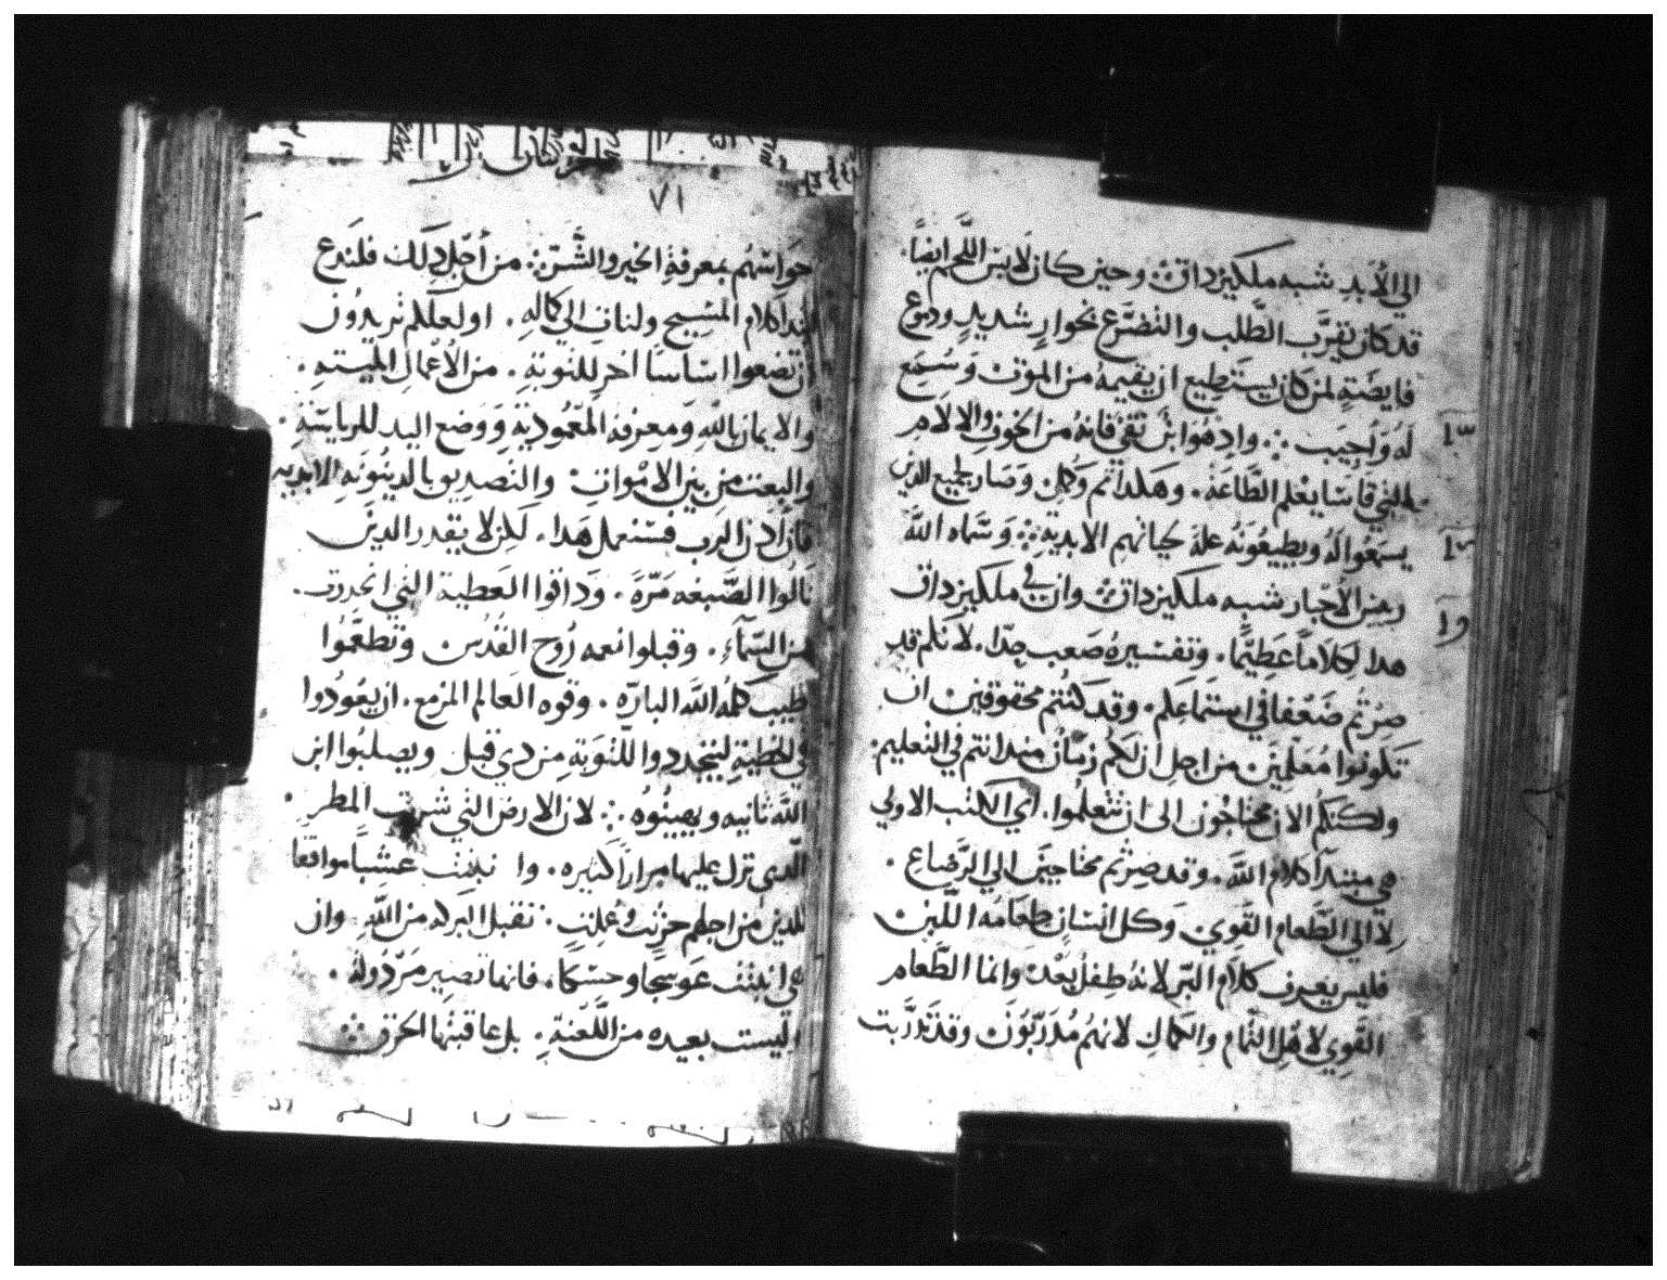 الي الأبد شبه ملكيزداق وحين كان لابس اللحم ايضاً.
قد كان يقرَّب الطَّلب والتضرَّع بحوارٍ شديدٍ ودموع
فايضةٍ لمن كان يستطيع ان يقيمهُ من الموت وسُمع
لهُ وأجيب واذ هُوَ ابنٌ تقي فانهُ من الخوف والالام
يعْلم الطَّاعة. وهكذا تم وكمل وصَار لجميع الذين
يسمَعُوا لهُ ويطيعُونهُ علة حياتهم الابديةِ وسَماه اللَّه
ريس الأحبار شبه ملكيزداق وان في ملكيزداق
هدا لكلاماً عَظيمًا. وتفسيرهُ صَعب جدّا. لانكم قد
صِرتُم ضَعفا في استماعكم. وقد كنتم محقوقين ان
تكونوا مُعَلمين من اجل ان لكم زمانٌ مند انتم في التعليم
ولكنكمُ الان محتاجُون الى ان تتعلموا. اي الكتب الاولي
هي مبتدا كلام اللَّه. وقد صِرتم محتاجين الي الرَّضاع.
لا الي الطَّعام القوي. وكل انسانٍ طعامُه اللَّبن
فليس يعرف كلام البّر لانهُ طِفلٌ بَعْد وانما الطَّعام
القوي لاهْل التَّمام والكمال لانهُم مُدَرَّبُونَ وقد تدرَّبت
١٣
١٤
١٥
٧١
حَواسّهُم بمعرفةِ الخير والشَّر من أجل دلك فلندع
ابتدا كلام المسيح ولنات الي كماله. اولعلكم تريدُون
ان تضعوا اسّاسًا اخر للتوبةِ. من الأعمال الميتةِ.
والايمان باللهِ ومعرفة المعْمُوديةِ ووضع اليد للرياسَة.
والبعث من بين الاموات والتصديق بالدينُونَهِ الابديه
فان أدن الرب فسنعمل هَدا. لكن لا يقدر الدين
نالوا الصَّبغه مَرّةً. وَداقوا العَطية التي انحدرت
من السّماء. وقبلوا نعمه رُوح القُدُس وتطعَّمُوا
طيب كلمةُ اللَّه البارّه. وقوه العالم المزمع. ان يعُودُوا
في الخطيةِ ليتجددوا للتوبةِ من دي قبل ويصلبُوا ابن
اللَّه ثانيه ويهينُوهُ لان الارض التي شربت المطر.
الّدى نزل عليها مراراً كثيره. وانبتت عشباً موافقا
للدين من اجلهم حُرثت وعُلنت تقبل البركه من اللَّهِ وان
هي انبتت عَوسجًا وحسَكًا. فانها تصير مَرْدُولهً.
وليست بعيده من اللَّعنةِ. بل عاقبتُها الحرق